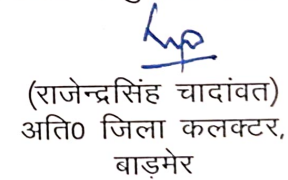 (राजेन्द्रसिंह चादांवत)
अति0 जिला कलक्टर,
बाड़मेर